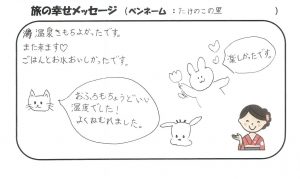 旅の幸せメッセージ（ペンネーム：たけのこの里　）
温泉きもちよかったです。
また来ます♡
ごはんとお水おいしかったです。
楽しかったです。
おふろもちょうどいい
温度でした！
よくねむれました。